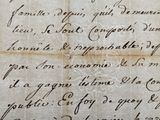 famille depuis qu'il demeure
lieu, se sont comportés, d'un
honnête et irréprochable; de
par son œconomie de sa m
il a gagné l'estime de la Con
publier. En foy de quoy de